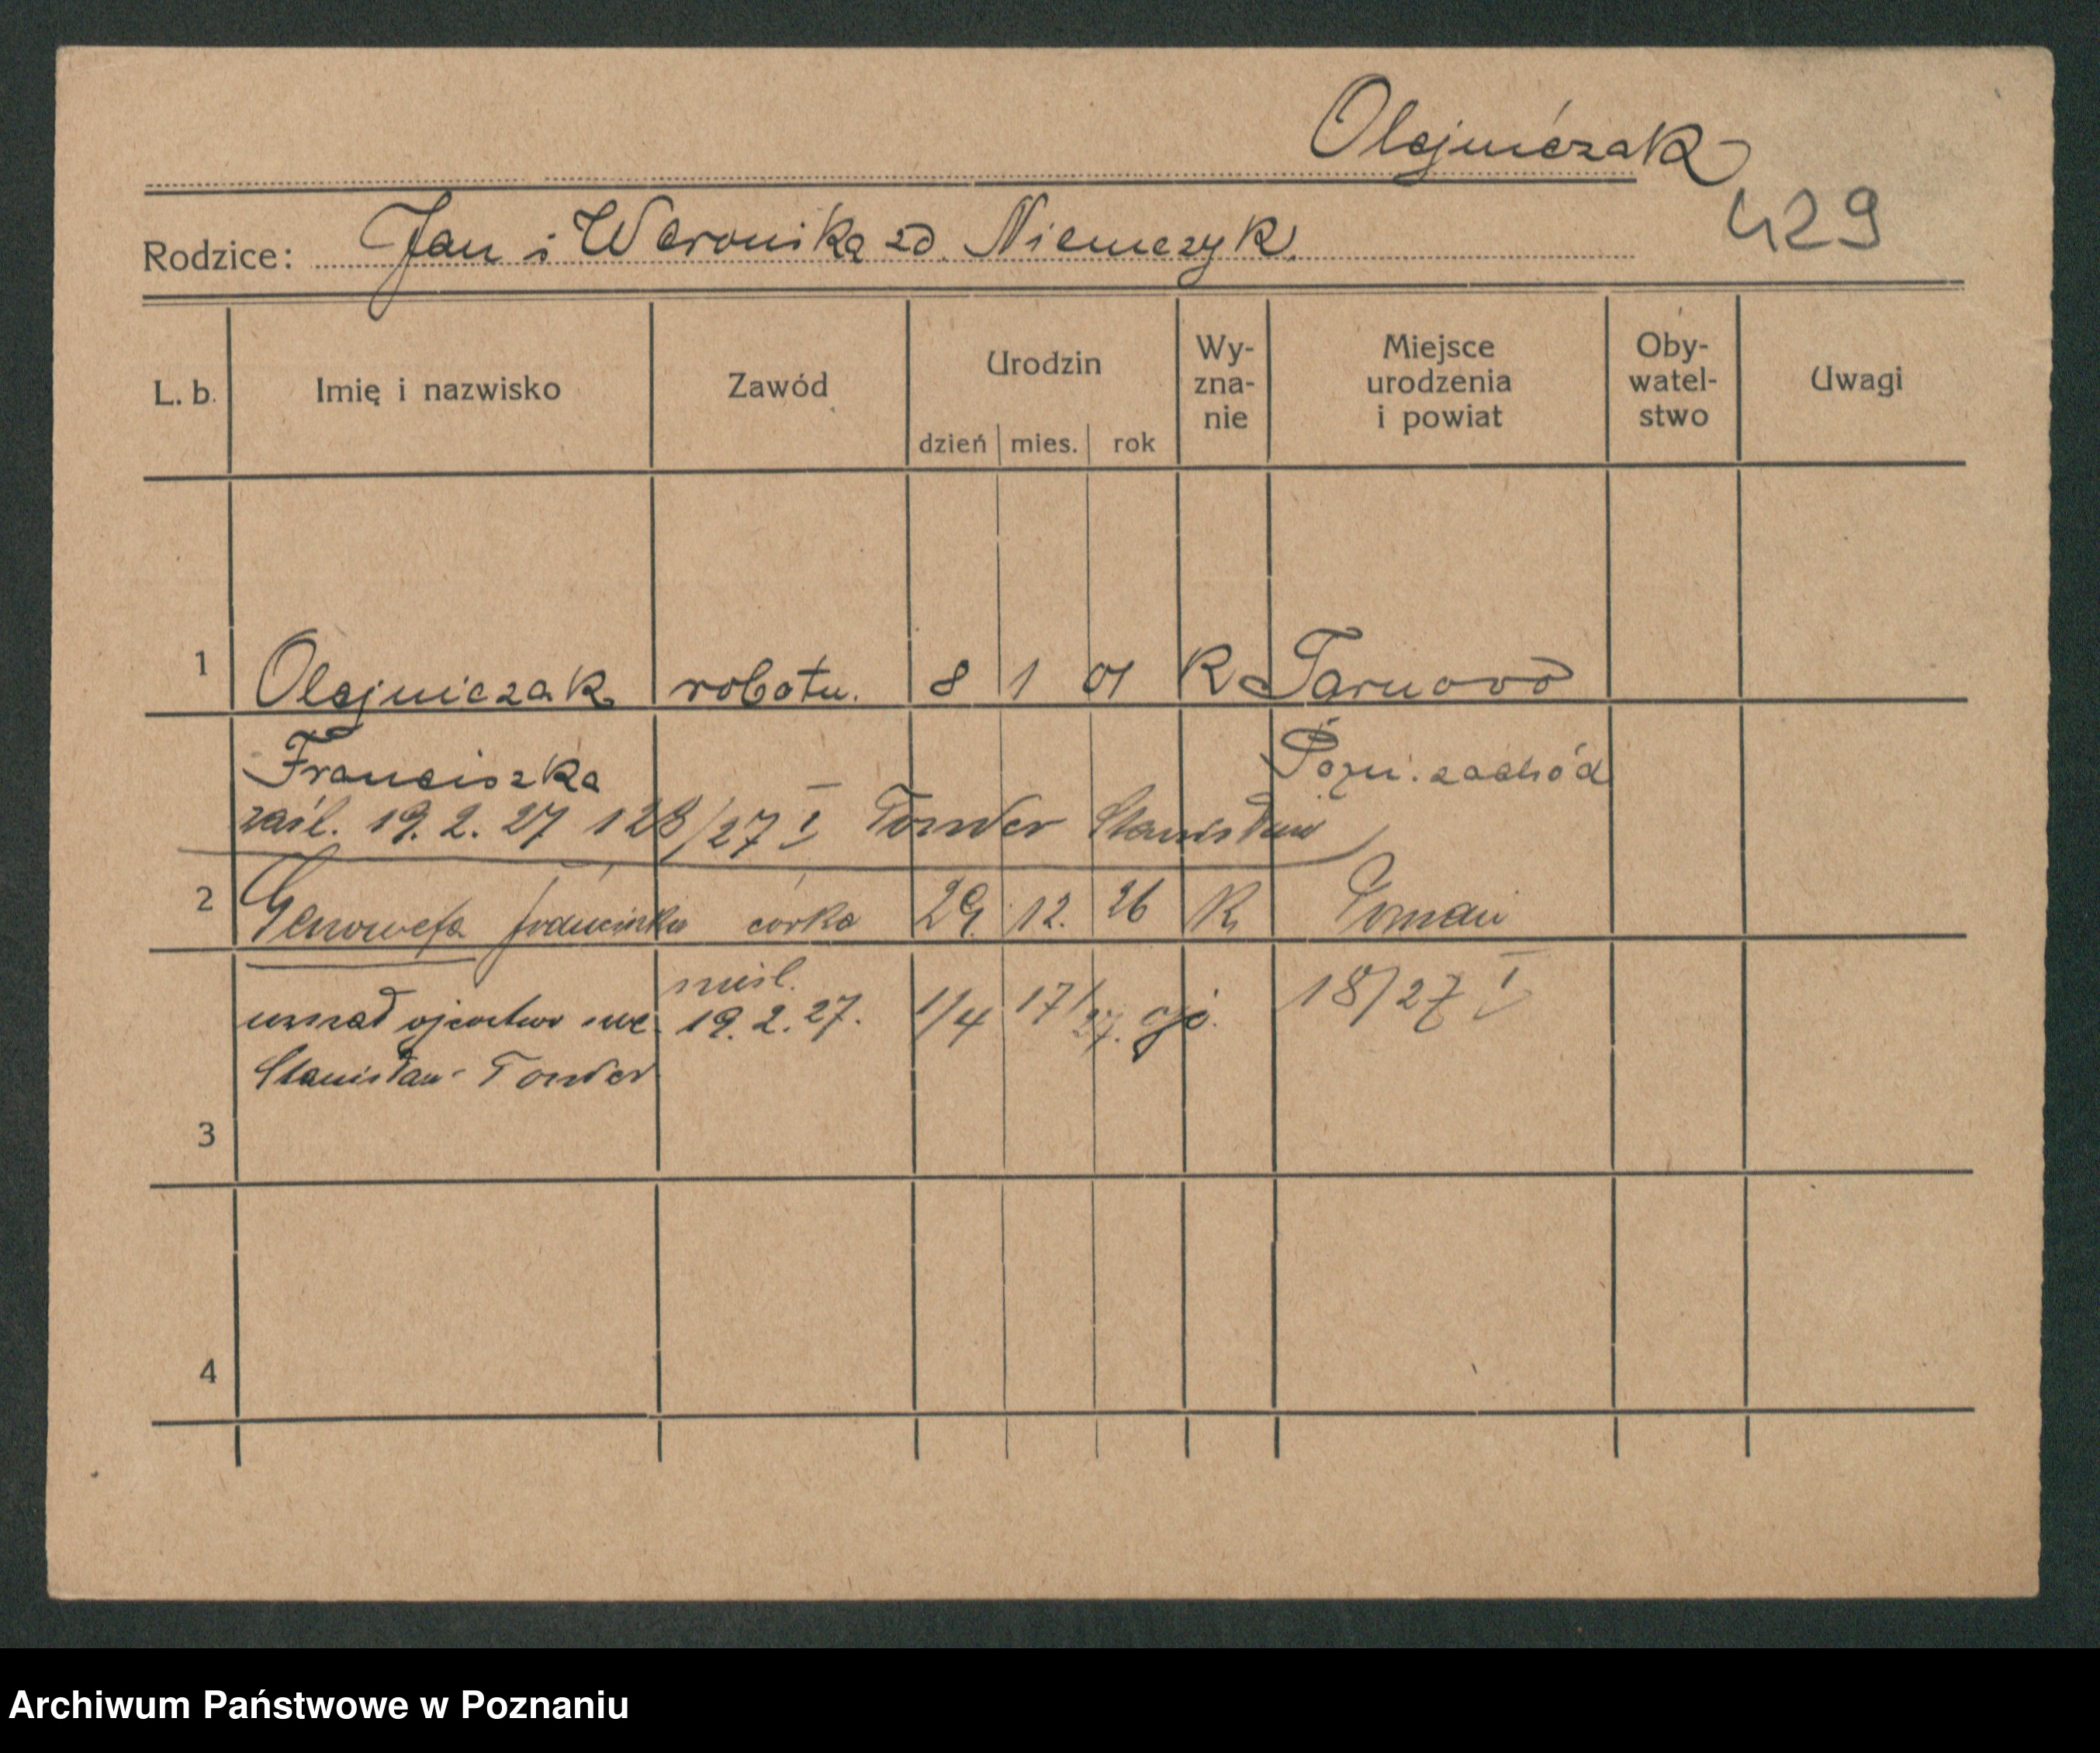 Olejniczak
429
Rodzice: Jan i Weronika zd. Niemczyk.
L. b. Imię i nazwisko Zawód Urodzin dzień mies. rok Wy-zna-nie Miejsce urodzenia i powiat Oby-watel-stwo Uwagi
1 Olejniczak robotn. 8 1 01 K Tarnowo
Franciszka Pozn. zachód
zaśl. 19. 2. 27 128/27 I Tonder Stanisław
2 Genowefa Franciszka córka 29. 12. 26 K Poznań
uznał ojcostwo nieśl. 19. 2. 27. 1/4 17/27. 18/27 I
Stanisław Tonder
3
4
Archiwum Państwowe w Poznaniu